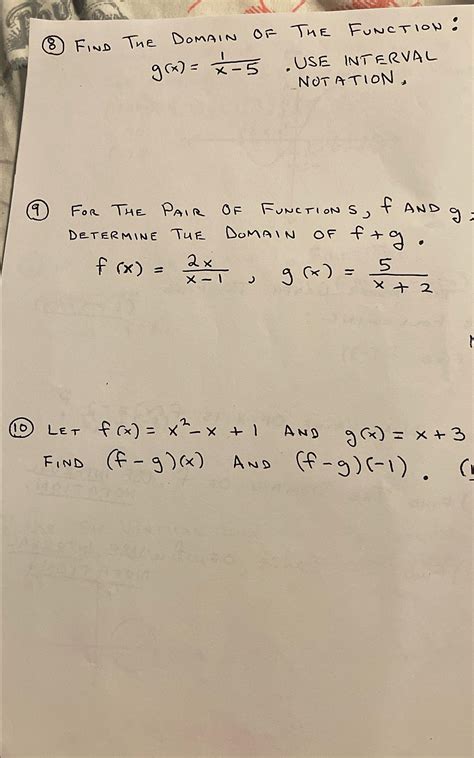 ⑧ FIND THE DOMAIN OF THE FUNCTION:
g(x) = 1/(x-5) . USE INTERVAL
NOTATION.
⑨ FOR THE PAIR OF FUNCTIONS, f AND g
DETERMINE THE DOMAIN OF f+g.
f(x) = 2x/(x-1) , g(x) = 5/(x+2)
⑩ LET f(x) = x²-x+1 AND g(x) = x+3
FIND (f-g)(x) AND (f-g)(-1).